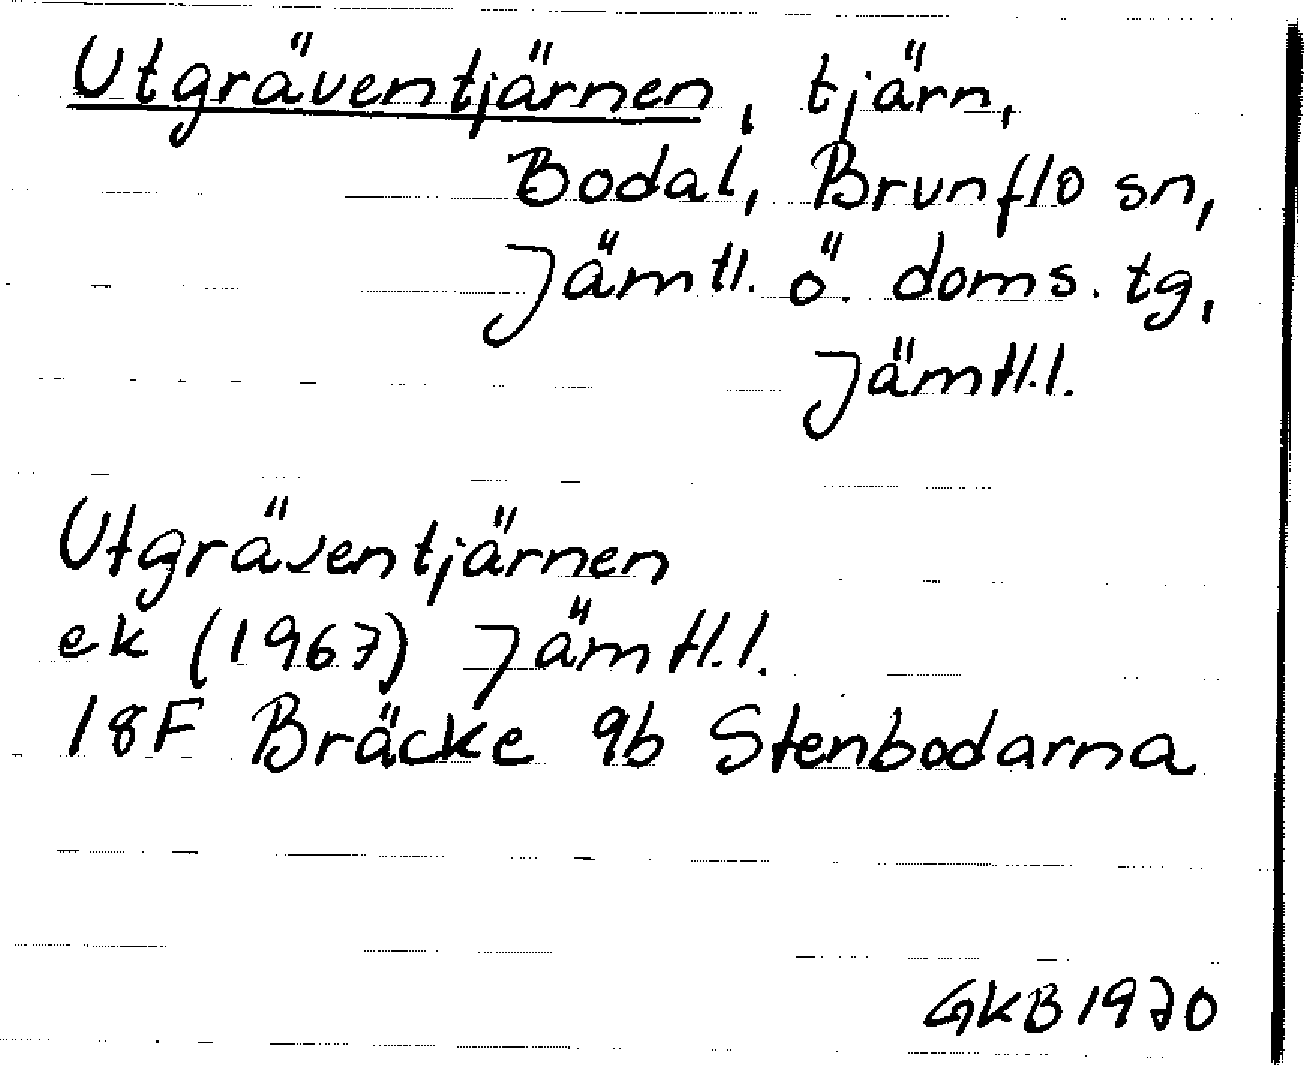 Utgräventjärnen, tjärn,
Bodal, Brunflo sn,
Jämtl. ö. doms. tg,
Jämtl.l.
Utgräventjärnen
ek (1967) Jämtl.l.
18F Bräcke 9b Stenbodarna
GKB 1970